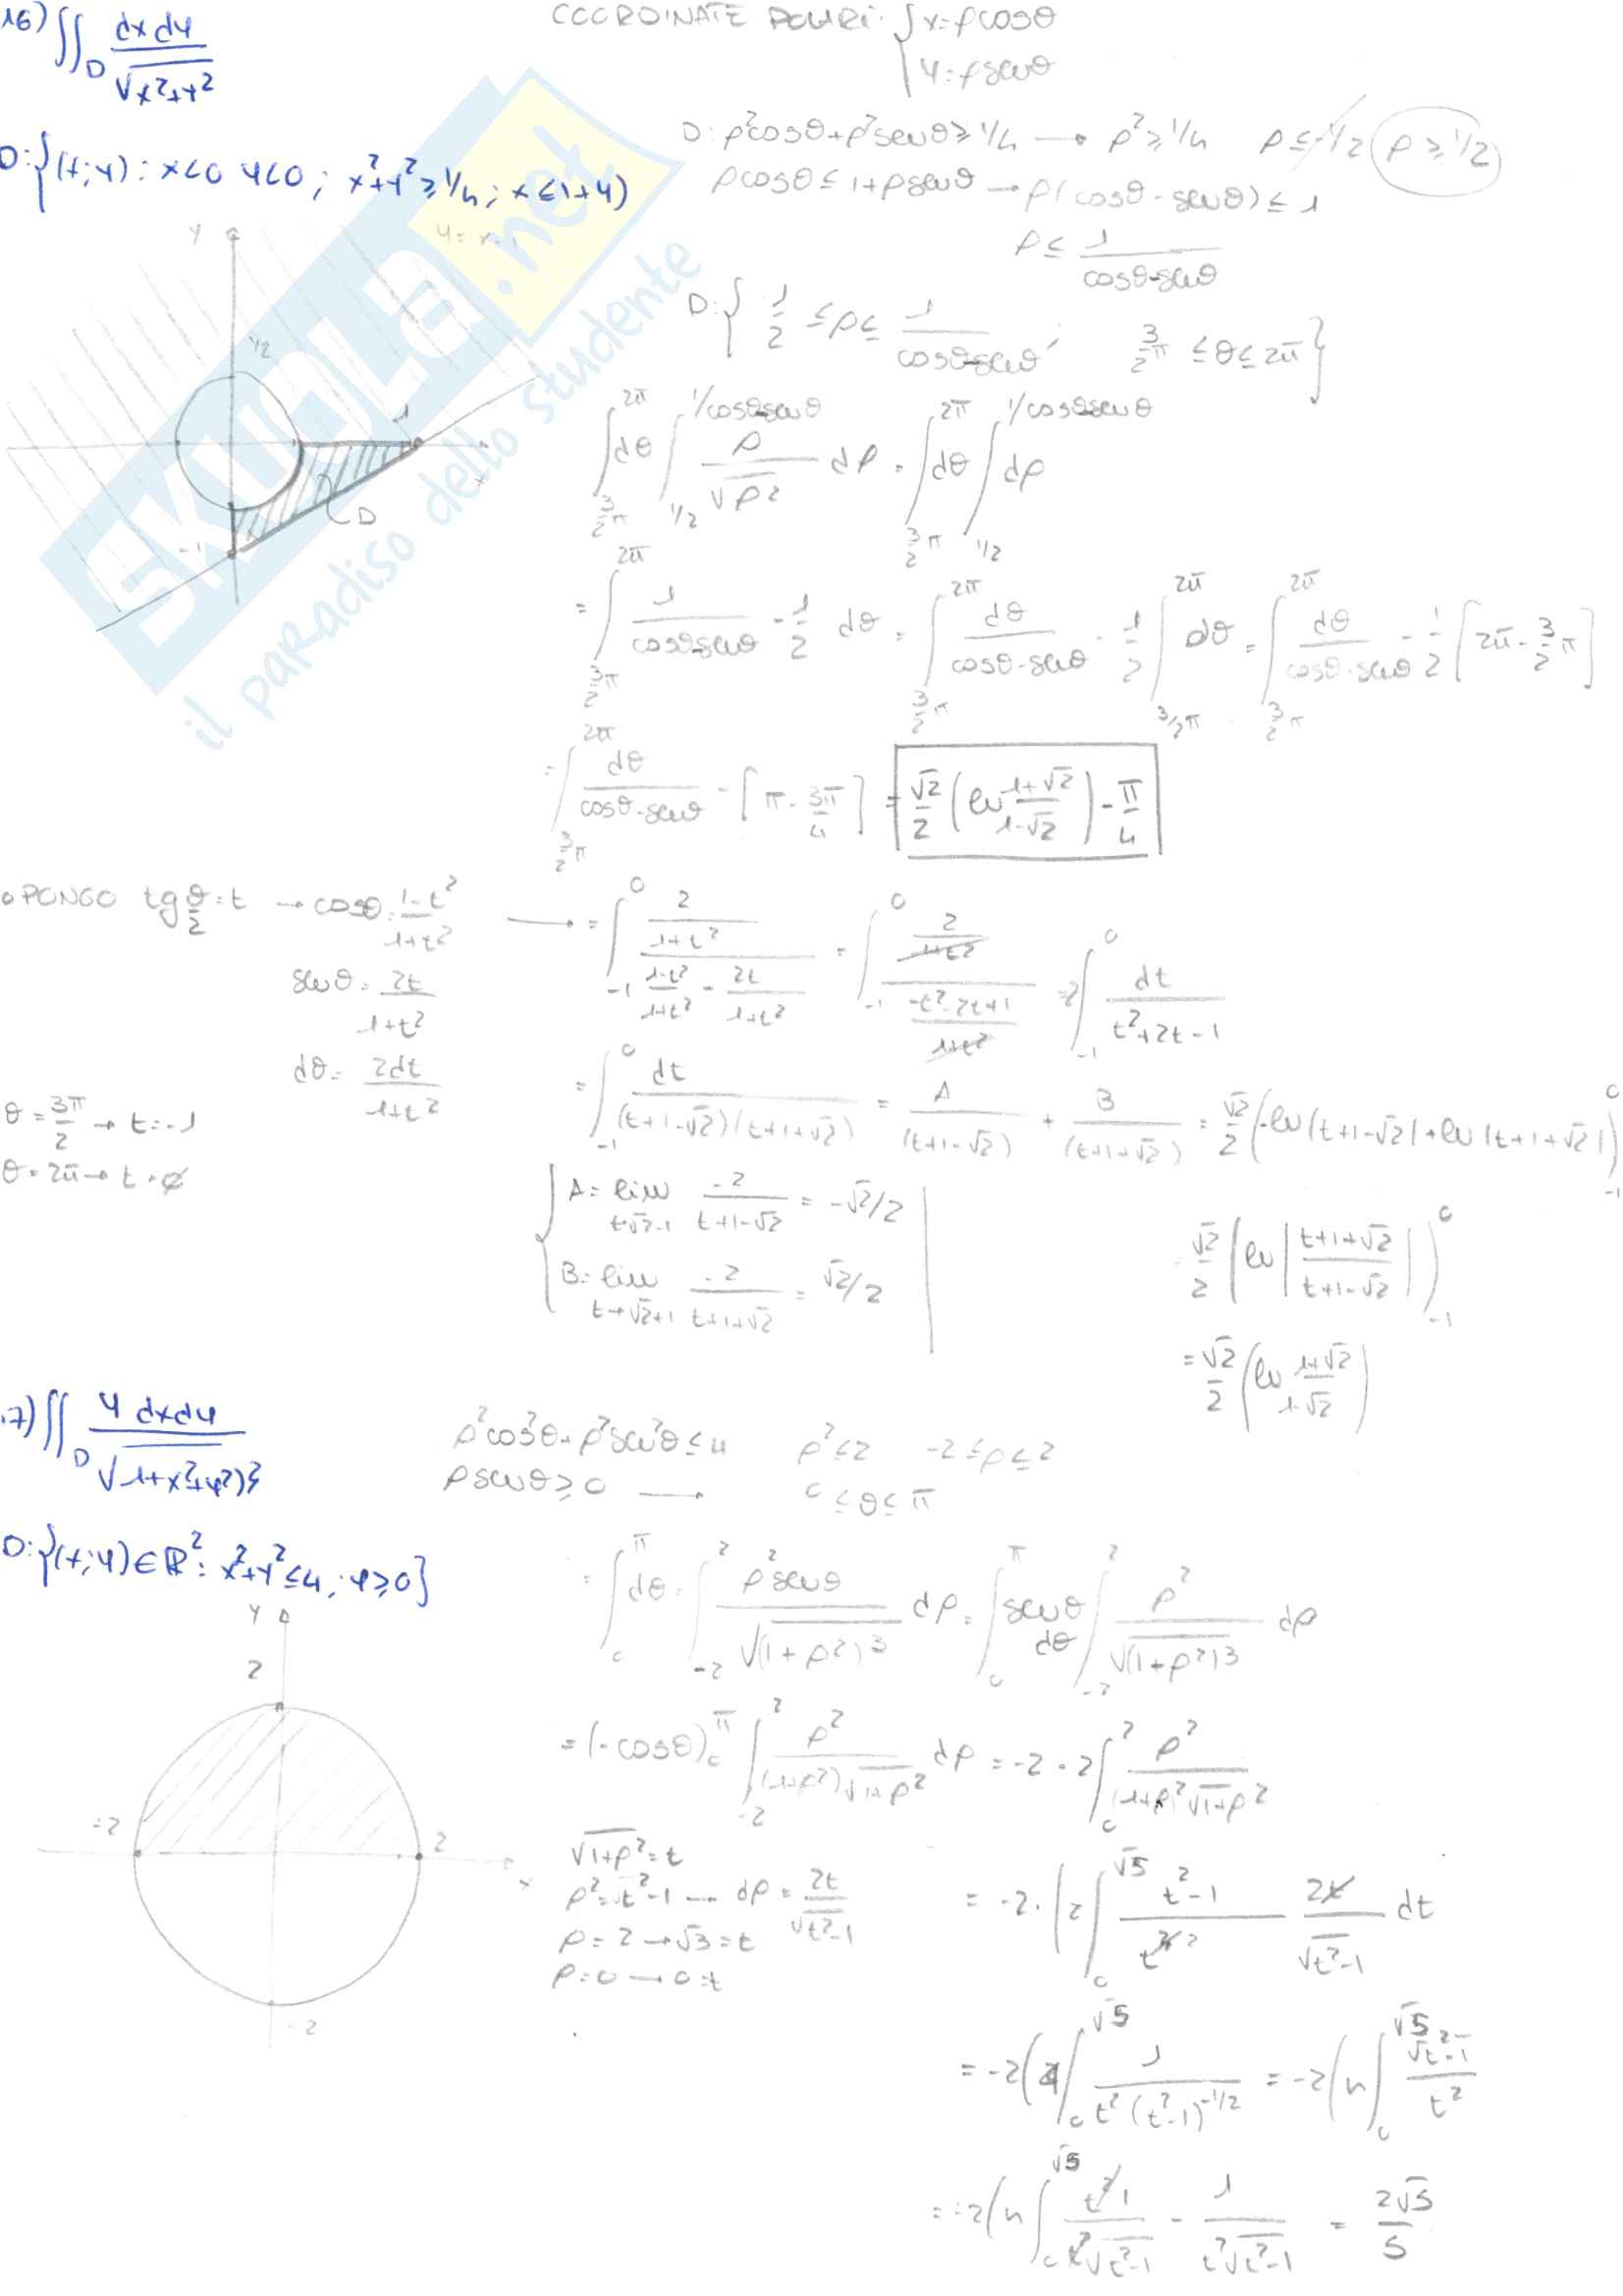 16) ∬_D dx dy / √(x²+y²)
COORDINATE POLARI: { x=ρcosθ
y=ρsenθ
D:{(x;y): x<0 y<0; x²+y²≥1/4; x≤1+y}
D: ρ²cosθ+ρ²senθ≥1/4 → ρ²≥1/4 ρ≤-1/2 ρ≥1/2
ρcosθ≤1+ρsenθ → ρ(cosθ-senθ)≤1
ρ≤ 1/(cosθ-senθ)
y
y=x-1
1/2
1
x
D
-1
D:{ 1/2 ≤ρ≤ 1/(cosθ-senθ); 3/2π ≤θ≤2π }
∫_{3/2π}^{2π} dθ ∫_{1/2}^{1/cosθ-senθ} ρ/√ρ² dρ = ∫_{3/2π}^{2π} dθ ∫_{1/2}^{1/cosθ-senθ} dρ
= ∫_{3/2π}^{2π} 1/(cosθ-senθ) - 1/2 dθ = ∫_{3/2π}^{2π} dθ/(cosθ-senθ) - 1/2 ∫_{3/2π}^{2π} dθ = ∫_{3/2π}^{2π} dθ/(cosθ-senθ) - 1/2 [2π-3/2π]
= ∫_{3/2π}^{2π} dθ/(cosθ-senθ) - [π-3π/4] = √2/2 (ln (1+√2)/(1-√2)) - π/4
PONGO tg θ/2=t → cosθ=(1-t²)/(1+t²) → = ∫_{-1}^{0} (2/(1+t²))/((1-t²)/(1+t²) - 2t/(1+t²)) = ∫_{-1}^{0} (2/(1+t²))/((-t²-2t+1)/(1+t²)) = 2∫_{-1}^{0} dt/(t²+2t-1)
senθ=2t/(1+t²)
dθ=2dt/(1+t²)
θ=3π/2 → t=-1
θ=2π → t=0
= ∫_{-1}^{0} dt/((t+1-√2)(t+1+√2)) = A/(t+1-√2) + B/(t+1+√2) = √2/2 (-ln|t+1-√2|+ln|t+1+√2|)_{-1}^{0}
A= lim_{t→√2-1} -2/(t+1-√2) = -√2/2
B= lim_{t→√2+1} -2/(t+1+√2) = √2/2
√2/2 (ln|(t+1+√2)/(t+1-√2)|)_{-1}^{0}
= √2/2 (ln (1+√2)/(1-√2))
.7) ∬_D y dxdy / √(1+x²+y²)³
ρ²cos²θ+ρ²sen²θ≤4 ρ²≤2 -2≤ρ≤2
ρsenθ≥0 → 0≤θ≤π
D:{(x;y)∈ℝ²: x²+y²≤4; y≥0}
y
2
-2
2
x
-2
= ∫_0^π dθ = ∫_{-2}^{2} ρ²senθ/√(1+ρ²)³ dρ = ∫_0^π senθ dθ ∫_{-2}^{2} ρ²/√(1+ρ²)³ dρ
= (-cosθ)_0^π ∫_{-2}^{2} ρ²/((1+ρ²)√1+ρ²) dρ = -2·2∫_0^2 ρ²/((1+ρ)²√1+ρ²)
√1+ρ²=t
ρ²=t²-1 → dρ=2t/√t²-1
ρ=2→√3=t
ρ=0→0=t
= -2·(2∫_0^{√5} (t²-1)/t² 2t/√t²-1 dt
= -2(4∫_0^{√5} 1/(t²(t²-1)^{-1/2}) = -2(4∫_0^{√5} √t²-1/t²
= -2(4∫_0^{√5} t²1/(t²√t²-1) - 1/(t²√t²-1) = 2√5/5
SKUOLA.net
il paradiso dello studente